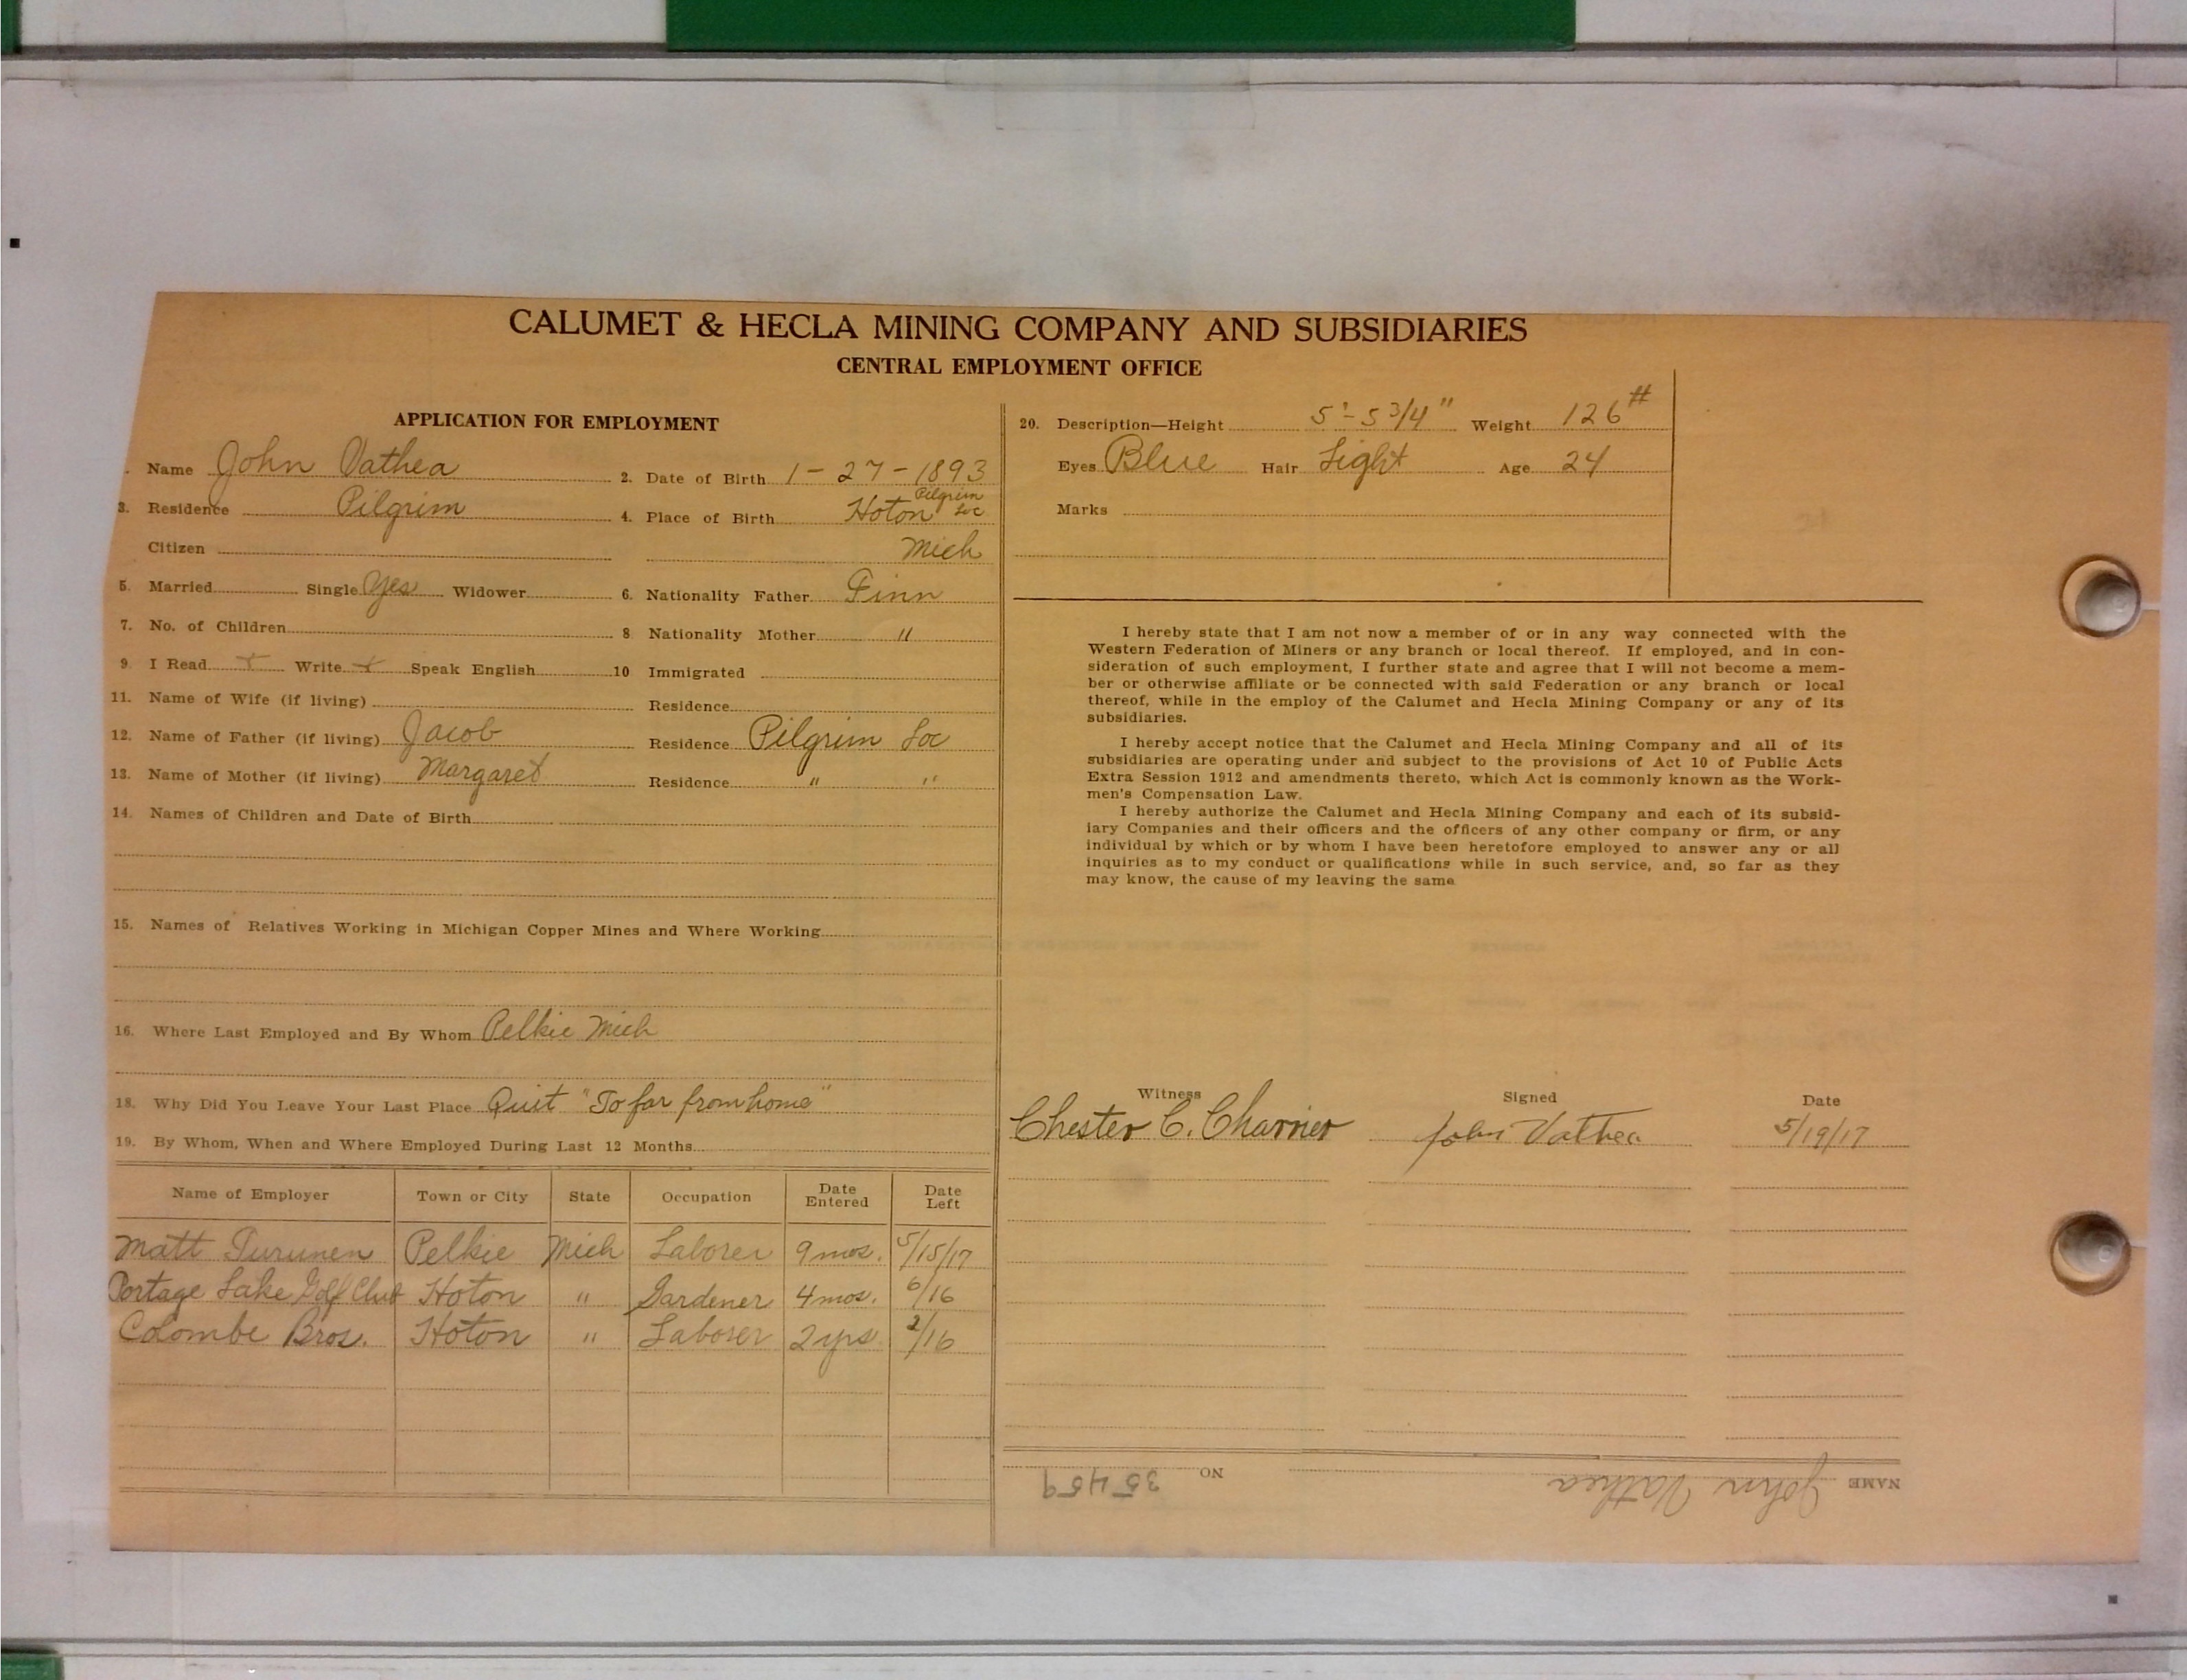 CALUMET & HECLA MINING COMPANY AND SUBSIDIARIES
CENTRAL EMPLOYMENT OFFICE
APPLICATION FOR EMPLOYMENT
. Name John Vathea 2. Date of Birth 1-27-1893
3. Residence Pilgrim 4. Place of Birth Hoton Pilgrim Loc
Citizen Mich
5. Married Single Yes Widower 6. Nationality Father Finn
7. No. of Children 8 Nationality Mother "
9. I Read + Write + Speak English 10 Immigrated
11. Name of Wife (if living) Residence
12. Name of Father (if living) Jacob Residence Pilgrim Loc
13. Name of Mother (if living) Margaret Residence " "
14. Names of Children and Date of Birth
15. Names of Relatives Working in Michigan Copper Mines and Where Working
16. Where Last Employed and By Whom Pelkie Mich
18. Why Did You Leave Your Last Place Quit "To far from home"
19. By Whom, When and Where Employed During Last 12 Months
Name of Employer Town or City State Occupation Date Entered Date Left
Matt Turunen Pelkie Mich Laborer 9 mos. 5/15/17
Portage Lake Golf Club Hoton " Gardener 4 mos. 6/16
Colombe Bros. Hoton " Laborer 2 yrs 2/16
20. Description—Height 5'-5 3/4" Weight 126#
Eyes Blue Hair Light Age 24
Marks
I hereby state that I am not now a member of or in any way connected with the
Western Federation of Miners or any branch or local thereof. If employed, and in con-
sideration of such employment, I further state and agree that I will not become a mem-
ber or otherwise affiliate or be connected with said Federation or any branch or local
thereof, while in the employ of the Calumet and Hecla Mining Company or any of its
subsidiaries.
I hereby accept notice that the Calumet and Hecla Mining Company and all of its
subsidiaries are operating under and subject to the provisions of Act 10 of Public Acts
Extra Session 1912 and amendments thereto, which Act is commonly known as the Work-
men's Compensation Law.
I hereby authorize the Calumet and Hecla Mining Company and each of its subsid-
iary Companies and their officers and the officers of any other company or firm, or any
individual by which or by whom I have been heretofore employed to answer any or all
inquiries as to my conduct or qualifications while in such service, and, so far as they
may know, the cause of my leaving the same
Witness Signed Date
Chester C. Charrier John Vathea 5/19/17
NAME John Vathea NO 35459